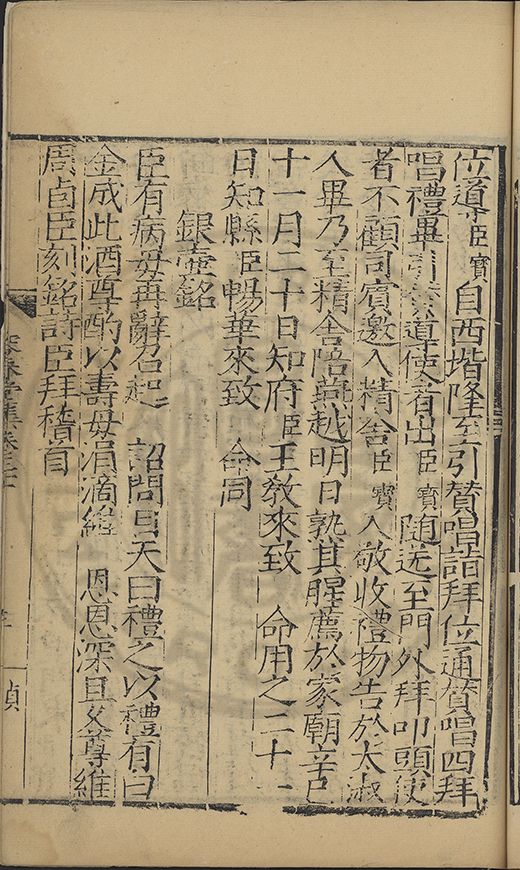 位導臣寶自西堦隆至引贊唱詣拜位通贊唱四拜
唱禮畢引導使者出臣寶隨送至門外拜叩頭使
者不顧司賓邀入精舍臣寶入敬收禮物告於太淑
人畢乃至精舍陪燕越明日孰其腥薦於家廟辛巳
十一月二十日知府臣王教來致 命用之二十一
日知縣臣暢華來致 命同
銀壺銘
臣有病母再辭召起 詔問曰夭曰禮之以禮有白
金成此酒尊酌以壽母涓滴維 恩恩深且父尊維
周貞臣刻銘詩臣拜稽首
容春堂集卷
貞